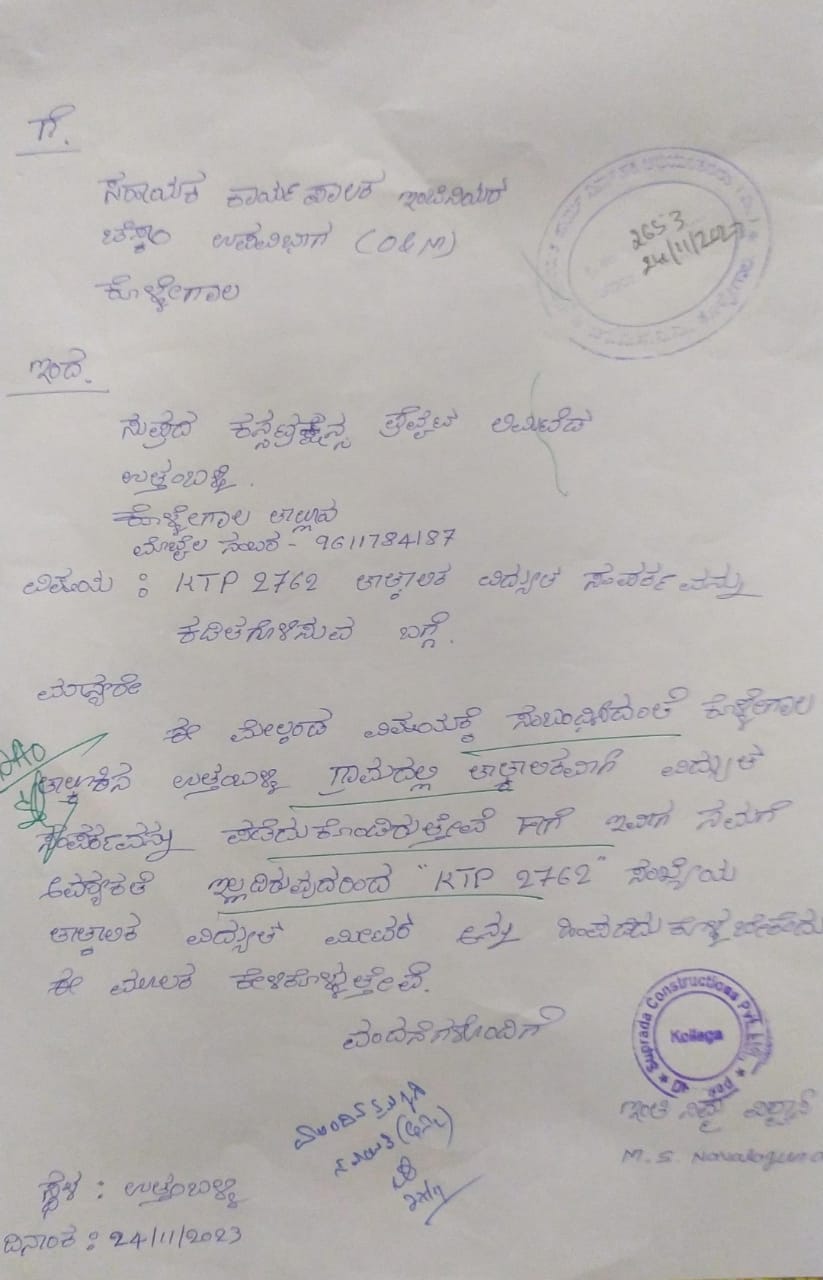 ಗೆ.
ಸಹಾಯಕ ಕಾರ್ಯಪಾಲಕ ಇಂಜಿನಿಯರ
ಚೆಸ್ಕಾಂ ಉಪವಿಭಾಗ (O&M)
ಕೊಳ್ಳೇಗಾಲ
2653
24/11/2023
ಇಂದ.
ಸುಪ್ರದ ಕನ್ಸಟ್ರಕ್ಷನ್ಸ ಪ್ರೈವೇಟ ಲಿಮಿಟೆಡ
ಉತ್ತಂಬಳ್ಳಿ.
ಕೊಳ್ಳೇಗಾಲ ತಾಲ್ಲೂಕ
ಮೊಬೈಲ ನಂಬರ - 9611784187
ವಿಷಯ : KTP 2762 ತಾತ್ಕಾಲಿಕ ವಿದ್ಯುತ ಸಂಪರ್ಕವನ್ನು
ಕಡಿತಗೊಳಿಸುವ ಬಗ್ಗೆ.
ಮಾನ್ಯರೇ
ಈ ಮೇಲ್ಕಂಡ ವಿಷಯಕ್ಕೆ ಸಂಬಂಧಿಸಿದಂತೆ ಕೊಳ್ಳೇಗಾಲ
ತಾಲ್ಲೂಕಿನ ಉತ್ತಂಬಳ್ಳಿ ಗ್ರಾಮದಲ್ಲಿ ತಾತ್ಕಾಲಿಕವಾಗಿ ವಿದ್ಯುತ
ಸಂಪರ್ಕವನ್ನು ಪಡೆದುಕೊಂಡಿರುತ್ತೇವೆ ಹಾಗೆ ಇವಾಗ ನಮಗೆ
ಅವಶ್ಯಕತೆ ಇಲ್ಲದಿರುವುದರಿಂದ "KTP 2762" ಸಂಖ್ಯೆಯ
ತಾತ್ಕಾಲಿಕ ವಿದ್ಯುತ ಮೀಟರ ಅನ್ನು ಹಿಂಪಡೆದುಕೊಳ್ಳಬೇಕೆಂದು
ಈ ಮೂಲಕ ಕೇಳಿಕೊಳ್ಳುತ್ತೇವೆ.
ವಂದನೆಗಳೊಂದಿಗೆ
Suprada Constructions Pvt. Ltd.
Kollega
ಇಂತಿ ನಿಮ್ಮ ವಿಶ್ವಾಸಿ
M. S.
ಸ್ಥಳ : ಉತ್ತಂಬಳ್ಳಿ
ದಿನಾಂಕ : 24/11/2023